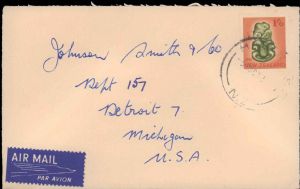 1/6
NEW ZEALAND
Johnson Smith & Co
Dept 157
Detroit 7
Michigan
U.S.A.
AIR MAIL
PAR AVION